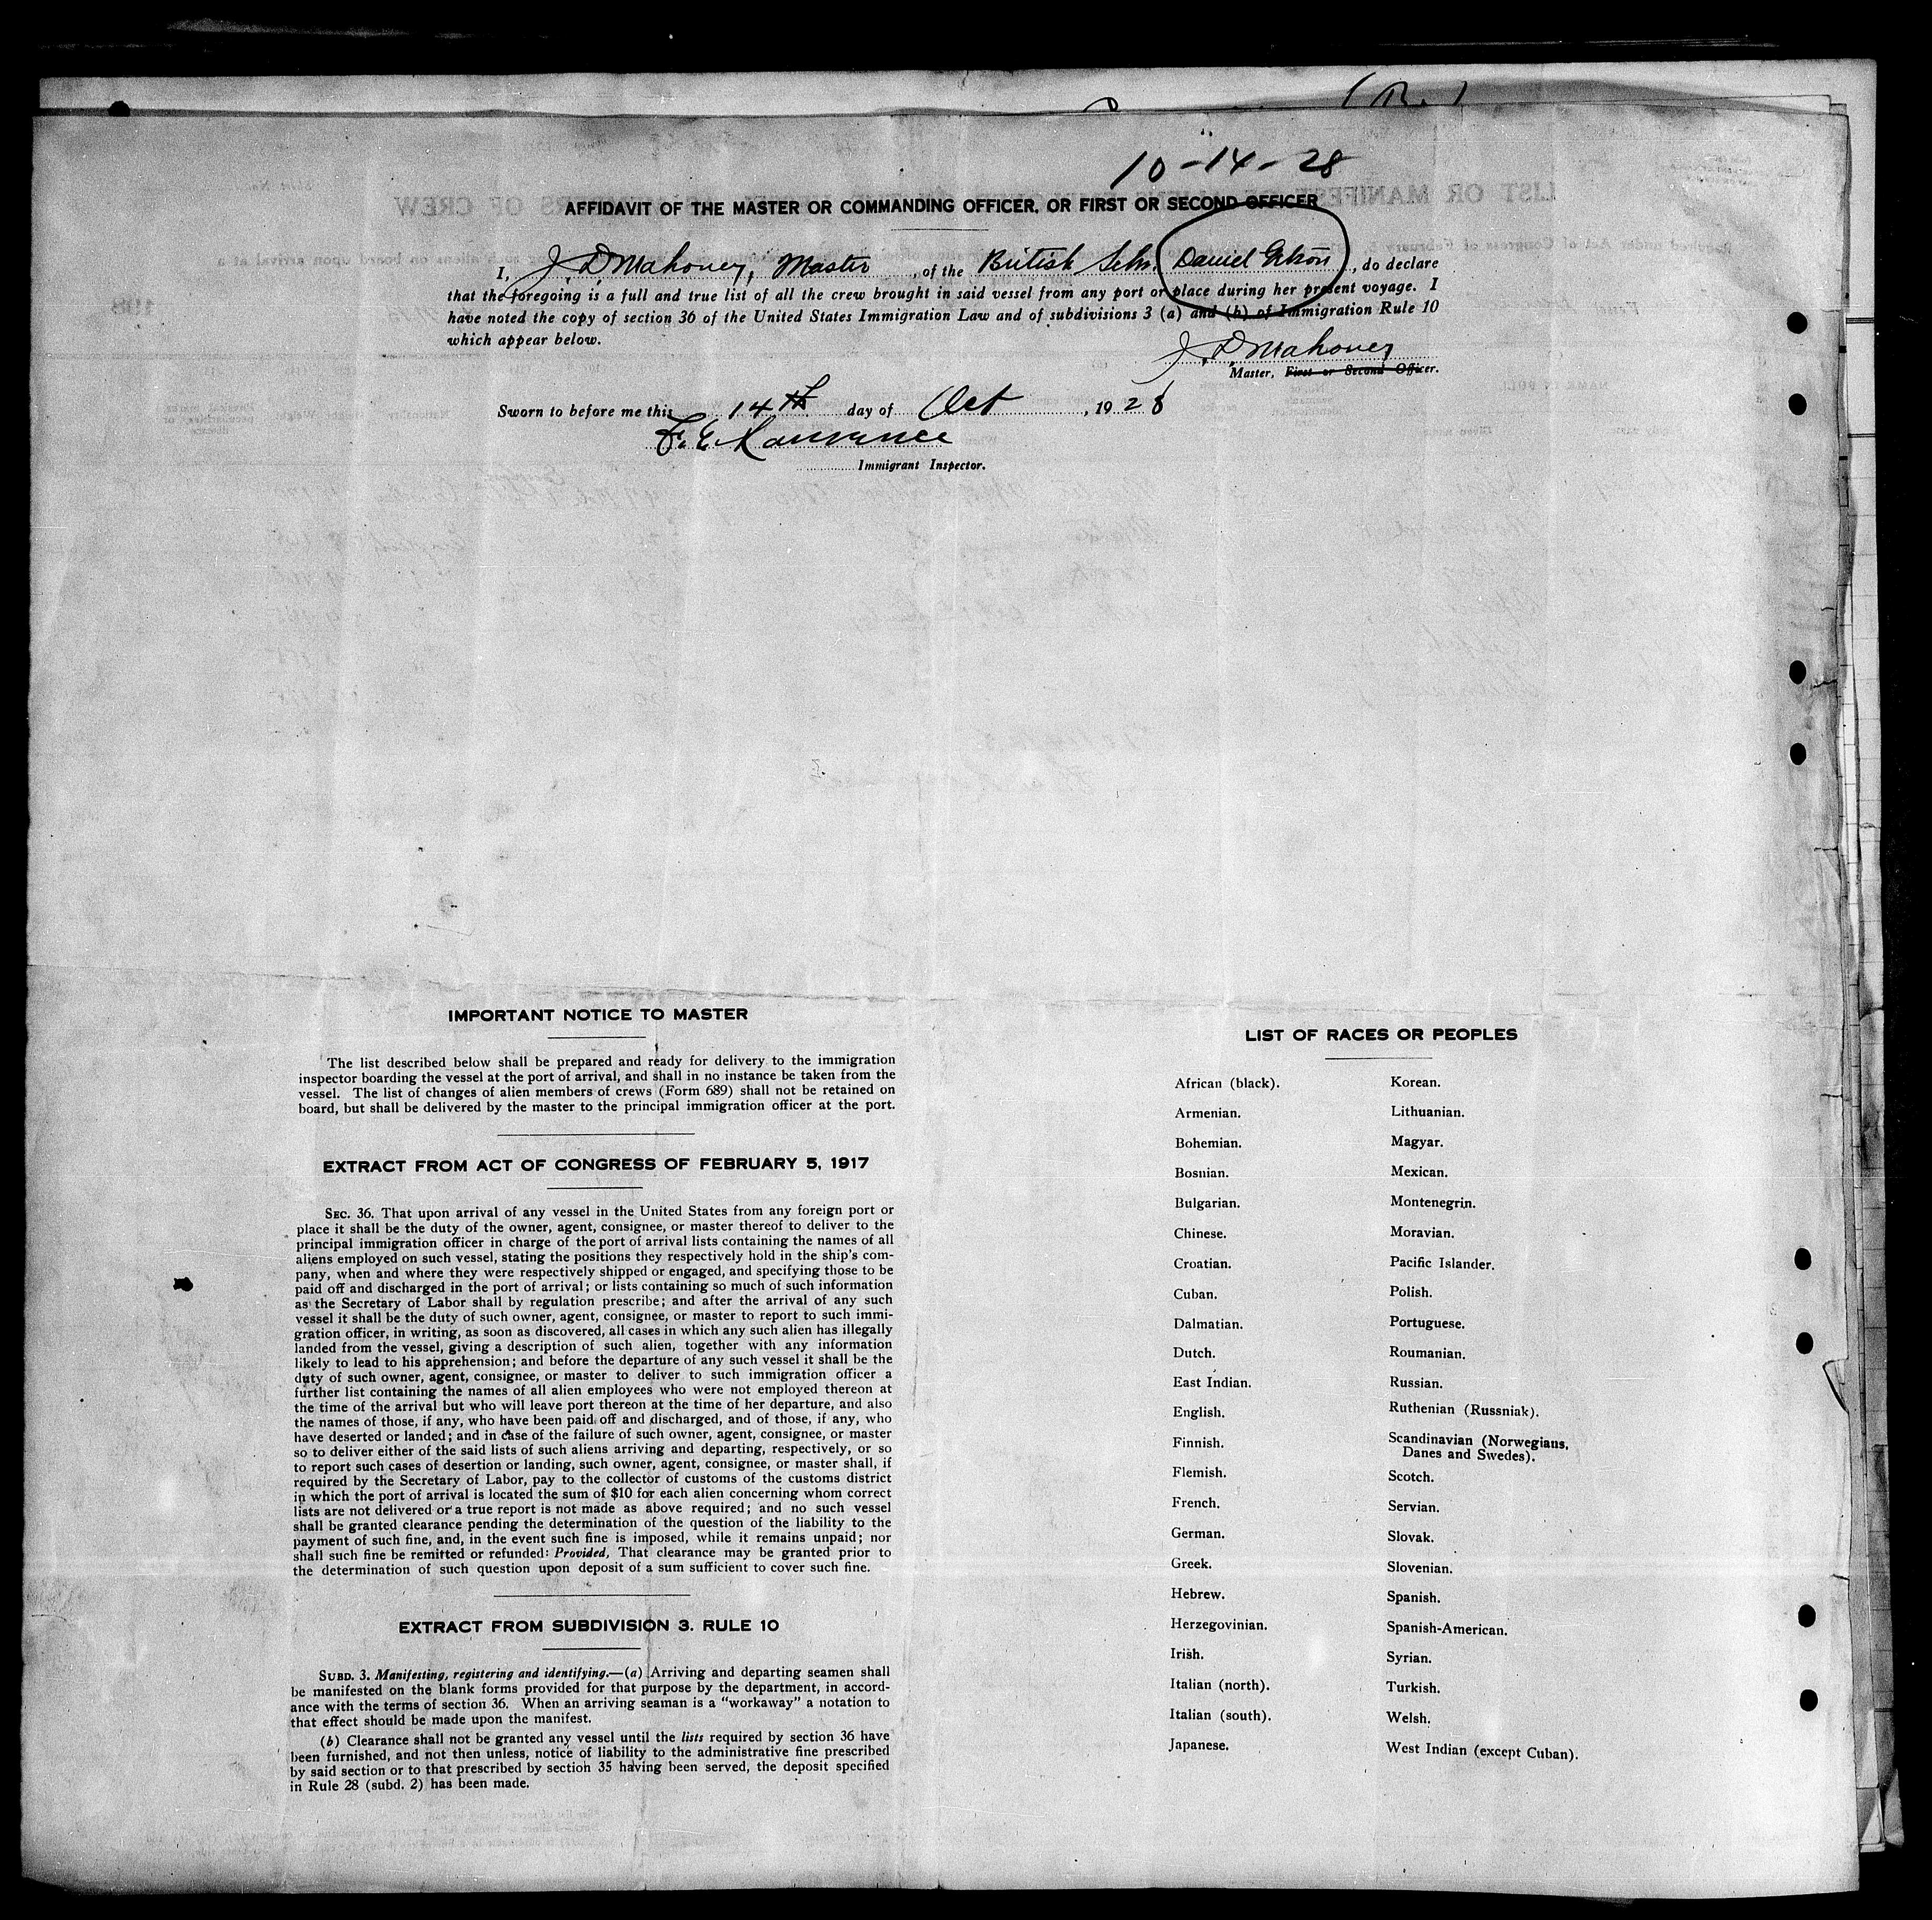 10-14-28
AFFIDAVIT OF THE MASTER OR COMMANDING OFFICER, OR FIRST OR SECOND OFFICER
I, J. D. Mahoney, Master, of the British Schr. Daniel, do declare
that the foregoing is a full and true list of all the crew brought in said vessel from any port or place during her present voyage. I
have noted the copy of section 36 of the United States Immigration Law and of subdivisions 3 (a) and (b) of Immigration Rule 10
which appear below.
J. D. Mahoney
Master, First or Second Officer.
Sworn to before me this 14th day of Oct, 1928
F. E. Lawrence
Immigrant Inspector.
IMPORTANT NOTICE TO MASTER
The list described below shall be prepared and ready for delivery to the immigration
inspector boarding the vessel at the port of arrival, and shall in no instance be taken from the
vessel. The list of changes of alien members of crews (Form 689) shall not be retained on
board, but shall be delivered by the master to the principal immigration officer at the port.
EXTRACT FROM ACT OF CONGRESS OF FEBRUARY 5, 1917
SEC. 36. That upon arrival of any vessel in the United States from any foreign port or
place it shall be the duty of the owner, agent, consignee, or master thereof to deliver to the
principal immigration officer in charge of the port of arrival lists containing the names of all
aliens employed on such vessel, stating the positions they respectively hold in the ship's com-
pany, when and where they were respectively shipped or engaged, and specifying those to be
paid off and discharged in the port of arrival; or lists containing so much of such information
as the Secretary of Labor shall by regulation prescribe; and after the arrival of any such
vessel it shall be the duty of such owner, agent, consignee, or master to report to such immi-
gration officer, in writing, as soon as discovered, all cases in which any such alien has illegally
landed from the vessel, giving a description of such alien, together with any information
likely to lead to his apprehension; and before the departure of any such vessel it shall be the
duty of such owner, agent, consignee, or master to deliver to such immigration officer a
further list containing the names of all alien employees who were not employed thereon at
the time of the arrival but who will leave port thereon at the time of her departure, and also
the names of those, if any, who have been paid off and discharged, and of those, if any, who
have deserted or landed; and in case of the failure of such owner, agent, consignee, or master
so to deliver either of the said lists of such aliens arriving and departing, respectively, or so
to report such cases of desertion or landing, such owner, agent, consignee, or master shall, if
required by the Secretary of Labor, pay to the collector of customs of the customs district
in which the port of arrival is located the sum of $10 for each alien concerning whom correct
lists are not delivered or a true report is not made as above required; and no such vessel
shall be granted clearance pending the determination of the question of the liability to the
payment of such fine, and, in the event such fine is imposed, while it remains unpaid; nor
shall such fine be remitted or refunded: Provided, That clearance may be granted prior to
the determination of such question upon deposit of a sum sufficient to cover such fine.
EXTRACT FROM SUBDIVISION 3. RULE 10
SUBD. 3. Manifesting, registering and identifying.—(a) Arriving and departing seamen shall
be manifested on the blank forms provided for that purpose by the department, in accord-
ance with the terms of section 36. When an arriving seaman is a "workaway" a notation to
that effect should be made upon the manifest.
(b) Clearance shall not be granted any vessel until the lists required by section 36 have
been furnished, and not then unless, notice of liability to the administrative fine prescribed
by said section or to that prescribed by section 35 having been served, the deposit specified
in Rule 28 (subd. 2) has been made.
LIST OF RACES OR PEOPLES
African (black).
Armenian.
Bohemian.
Bosnian.
Bulgarian.
Chinese.
Croatian.
Cuban.
Dalmatian.
Dutch.
East Indian.
English.
Finnish.
Flemish.
French.
German.
Greek.
Hebrew.
Herzegovinian.
Irish.
Italian (north).
Italian (south).
Japanese.
Korean.
Lithuanian.
Magyar.
Mexican.
Montenegrin.
Moravian.
Pacific Islander.
Polish.
Portuguese.
Roumanian.
Russian.
Ruthenian (Russniak).
Scandinavian (Norwegians,
Danes and Swedes).
Scotch.
Servian.
Slovak.
Slovenian.
Spanish.
Spanish-American.
Syrian.
Turkish.
Welsh.
West Indian (except Cuban).